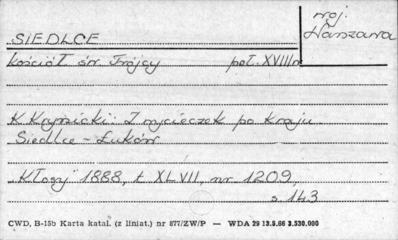 woj.
Warszawa
SIEDLCE
Kościół św. Trójcy poł. XVIII w
K. Krynicki: Z wycieczek po kraju.
Siedlce - Łuków
"Kłosy" 1888, t XLVII, nr 1209,
s. 143
CWD, B-15b Karta katal. (z liniat.) nr 877/ZW/P — WDA 29 13.5.66 3.530.000